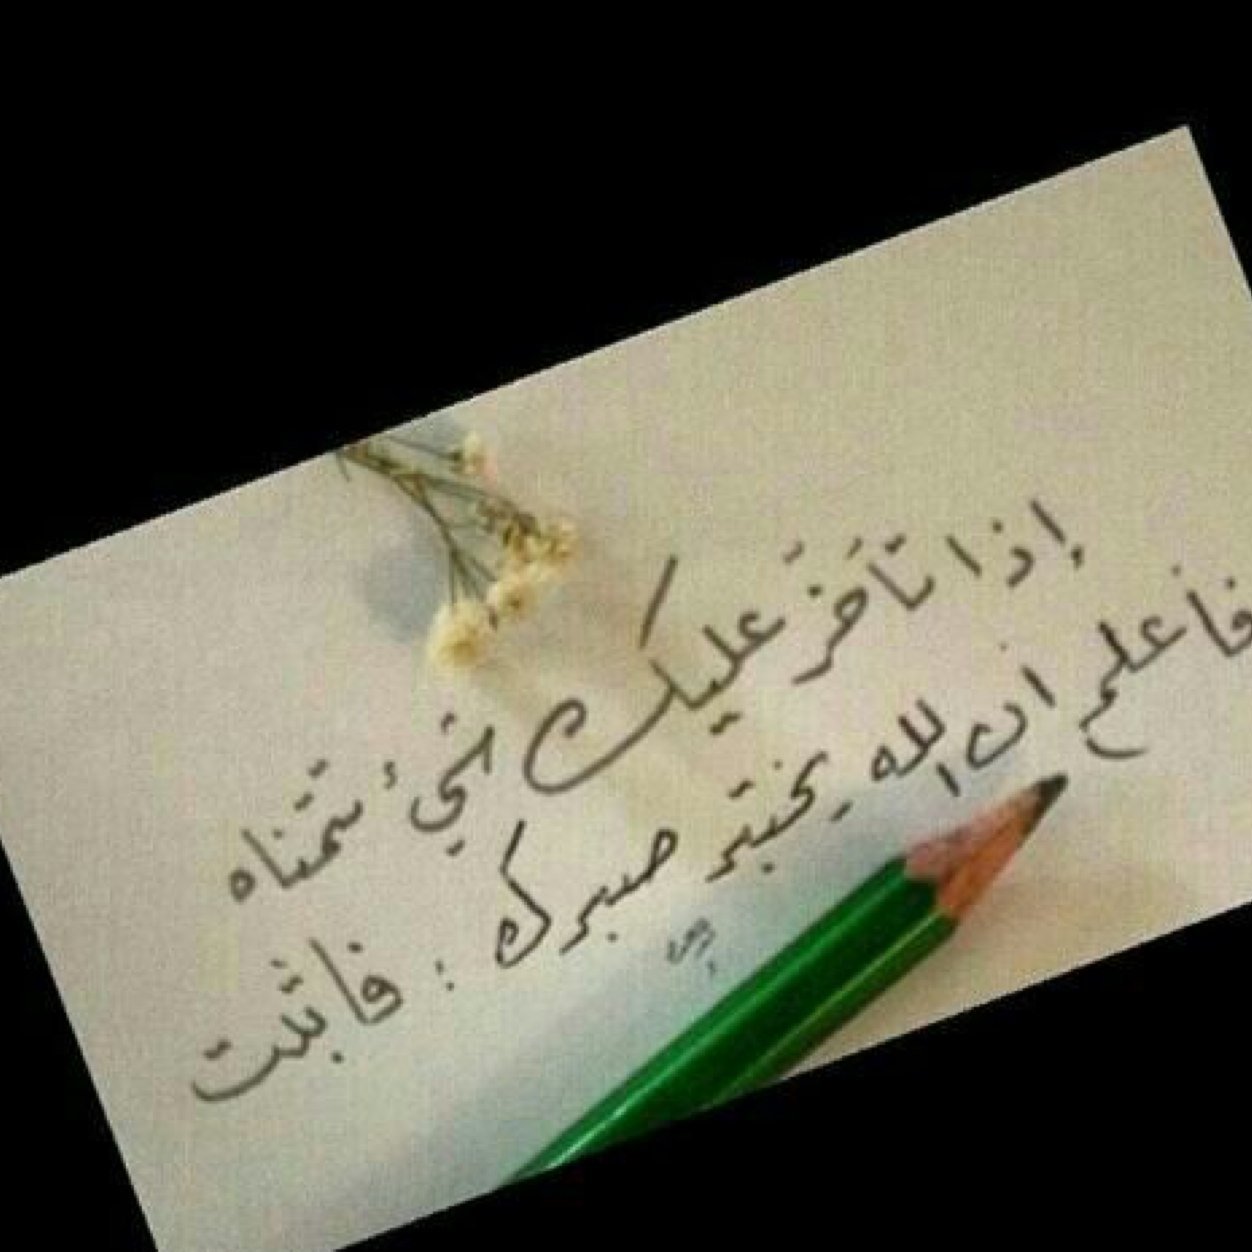 إذا تأخرَّ عليك شيء تتمناه
فأعلم ان الله يختبر صبرك : فاثبت